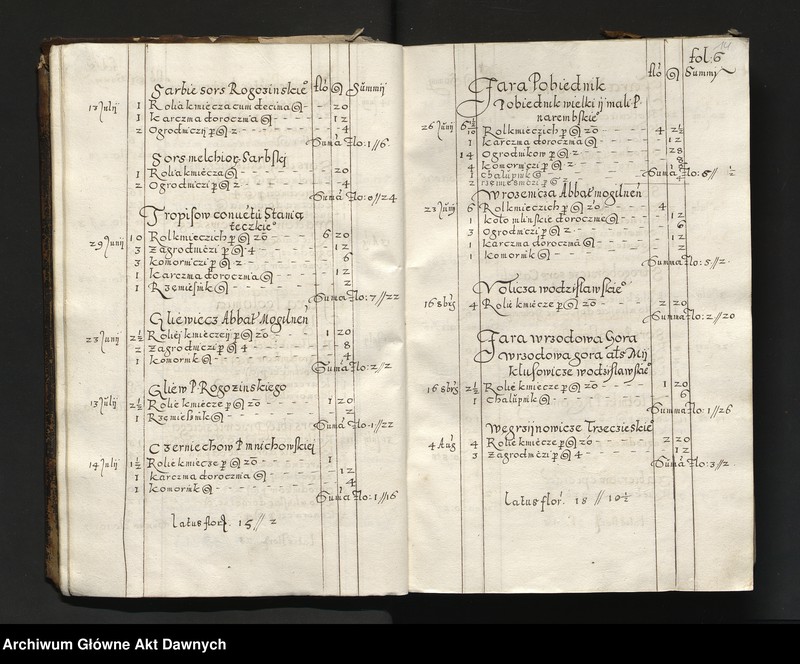 Sarbie sors Rogozinskie flo g Summÿ
17 Julij 1 Rolia kmiecza cum decima g 20
1 Karczma doroczna g 12
2 Ogrodniczÿ p g 2 4
Suma flo: 1//6
Sors melchior Sarbskÿ
1 Rolia kmiecza g 20
2 Ogrodniczi p g 2 4
Suma flo: 0//24
Tropisow conuētu Staniąteczkie
29 Junij 10 Rol kmieczich p g 20 6 20
3 Zagrodniczi p g 4 12
3 Komorniczi p g 2 6
1 Karczma doroczna g 12
1 Rzemiesnik g 2
Suma flo: 7//22
Gliewiecz Abbat Mogilnen
23 Junij 2½ Roliej kmieczeÿ p g 20 1 20
2 Zagrodniczi p g 4 8
1 Komornik g 4
Suma flo: 2//2
Gliew P Rogozinskiego
13 Julij 2½ Rolie kmiecze p g 20 1 20
1 Rzemiesnik g 2
Suma flo: 1//22
Czerniechow P mnichowskiej
14 Julij 1½ Rolie kmiecze p g 20 1
1 Karczma doroczna g 12
1 Komornik g 4
Suma flo: 1//16
latus flor. 15// 2
14
fol: 6
flo g Summÿ
Fara Pobiednik
Pobiednik wielki ÿ mali P.
narembskie
26 Junij 6½
10 Rol kmieczich p g 20 4 2½
1 Karczma doroczna g 12
14 Ogrodnikow p g 2 28
4 Komornik p g 2 8
1 Chalupnik g
2 rzemiesniczi p g 2
Suma flo: 6// ½
Wrozenicza Abbat mogilnen
23 Junij 6 Rol kmieczich p g 20 4
1 Koło mlinskie doroczne g 12
3 Ogrodniczi p g 2 6
1 Karczma doroczna g 12
1 Komornik g 2
Summa flo: 5//2
Volicza wodzislawskie
16 8bris 4 Rolie kmiecze p g 20 2 20
Summa flo: 2//20
Fara wrzodowa Gora
Wrzodowa gora als Mij
klusowicze wodzislawskie
16 8bris 2½ Rolie kmiecze p g 20 1 20
1 Chalupnik g 6
Summa flo: 1//26
Węgrzijnowicze Trzeczieskie
4 Aug 4 Rolie kmiecze p g 20 2 20
3 Zagrodniczi p g 4 12
Suma flo: 3//2
latus flor. 18 // 10½
Archiwum Główne Akt Dawnych